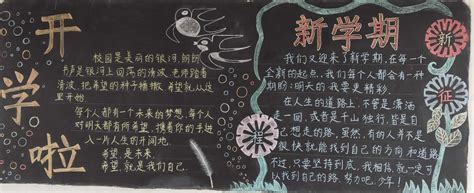 开学啦
校园是美丽的银河,朗朗
书声是银河上回荡的清波,老师踏着
清波,把希望的种子播撒,希望就从这
里开始。
每个人都有一个未来的梦想,每个人
对明天都有所希望,携着你的手进
入一片人生的开阔地。
希望,是未来,
希望,就是我们自己。
新学期
我们又迎来了新学期,在每一个
全新的起点,我们每个人都会有一种
期盼:明天的我要更精彩。
在人生的道路上,不管是潇洒
走一回,或者是千山独行,皆是自
己想走的路,虽然,有的人并不是
很快就能找到自己的方向和道路
不过,只要坚持到底,我相信,就一定可
以找到自己的路,努力吧,少年!
新
征
程